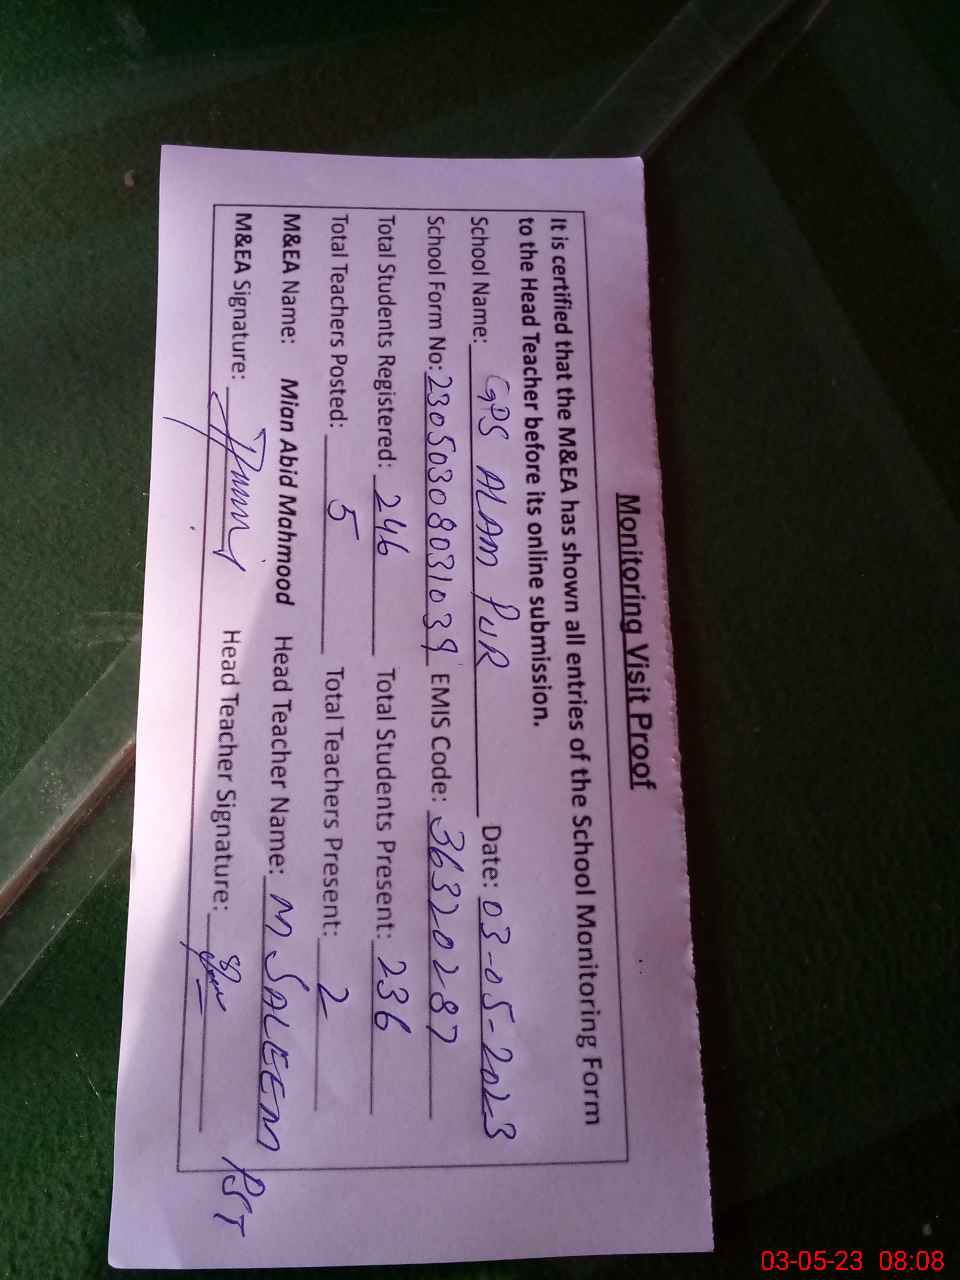 Monitoring Visit Proof
It is certified that the M&EA has shown all entries of the School Monitoring Form
to the Head Teacher before its online submission.
School Name: GPS ALAM PUR Date: 03-05-2023
School Form No: 23050308031039 EMIS Code: 36320287
Total Students Registered: 246 Total Students Present: 236
Total Teachers Posted: 5 Total Teachers Present: 2
M&EA Name: Mian Abid Mahmood Head Teacher Name: M SALEEM PST
M&EA Signature: Head Teacher Signature:
03-05-23 08:08